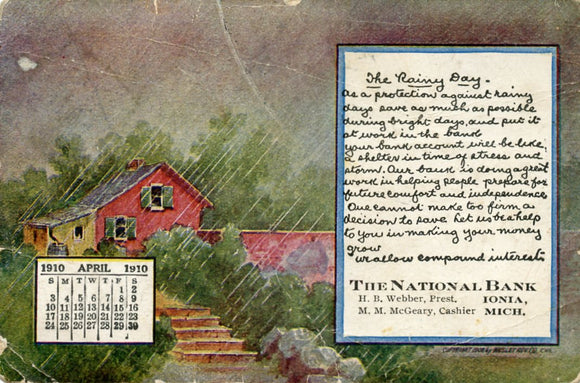 The Rainy Day.
As a protection against rainy
days save as much as possible
during bright days, and put it
at work in the bank
your bank account will be like,
a shelter in time of stress and
storm. Our bank is doing a great
work in helping people prepare for
future comfort and independence
One cannot make too firm a
decision to save Let us be a help
to you in making your money
grow
we allow compound interest.
THE NATIONAL BANK
H. B. Webber, Prest.
M. M. McGeary, Cashier
IONIA,
MICH.
1910 APRIL 1910
S M T W T F S
1 2
3 4 5 6 7 8 9
10 11 12 13 14 15 16
17 18 19 20 21 22 23
24 25 26 27 28 29 30
COPYRIGHT